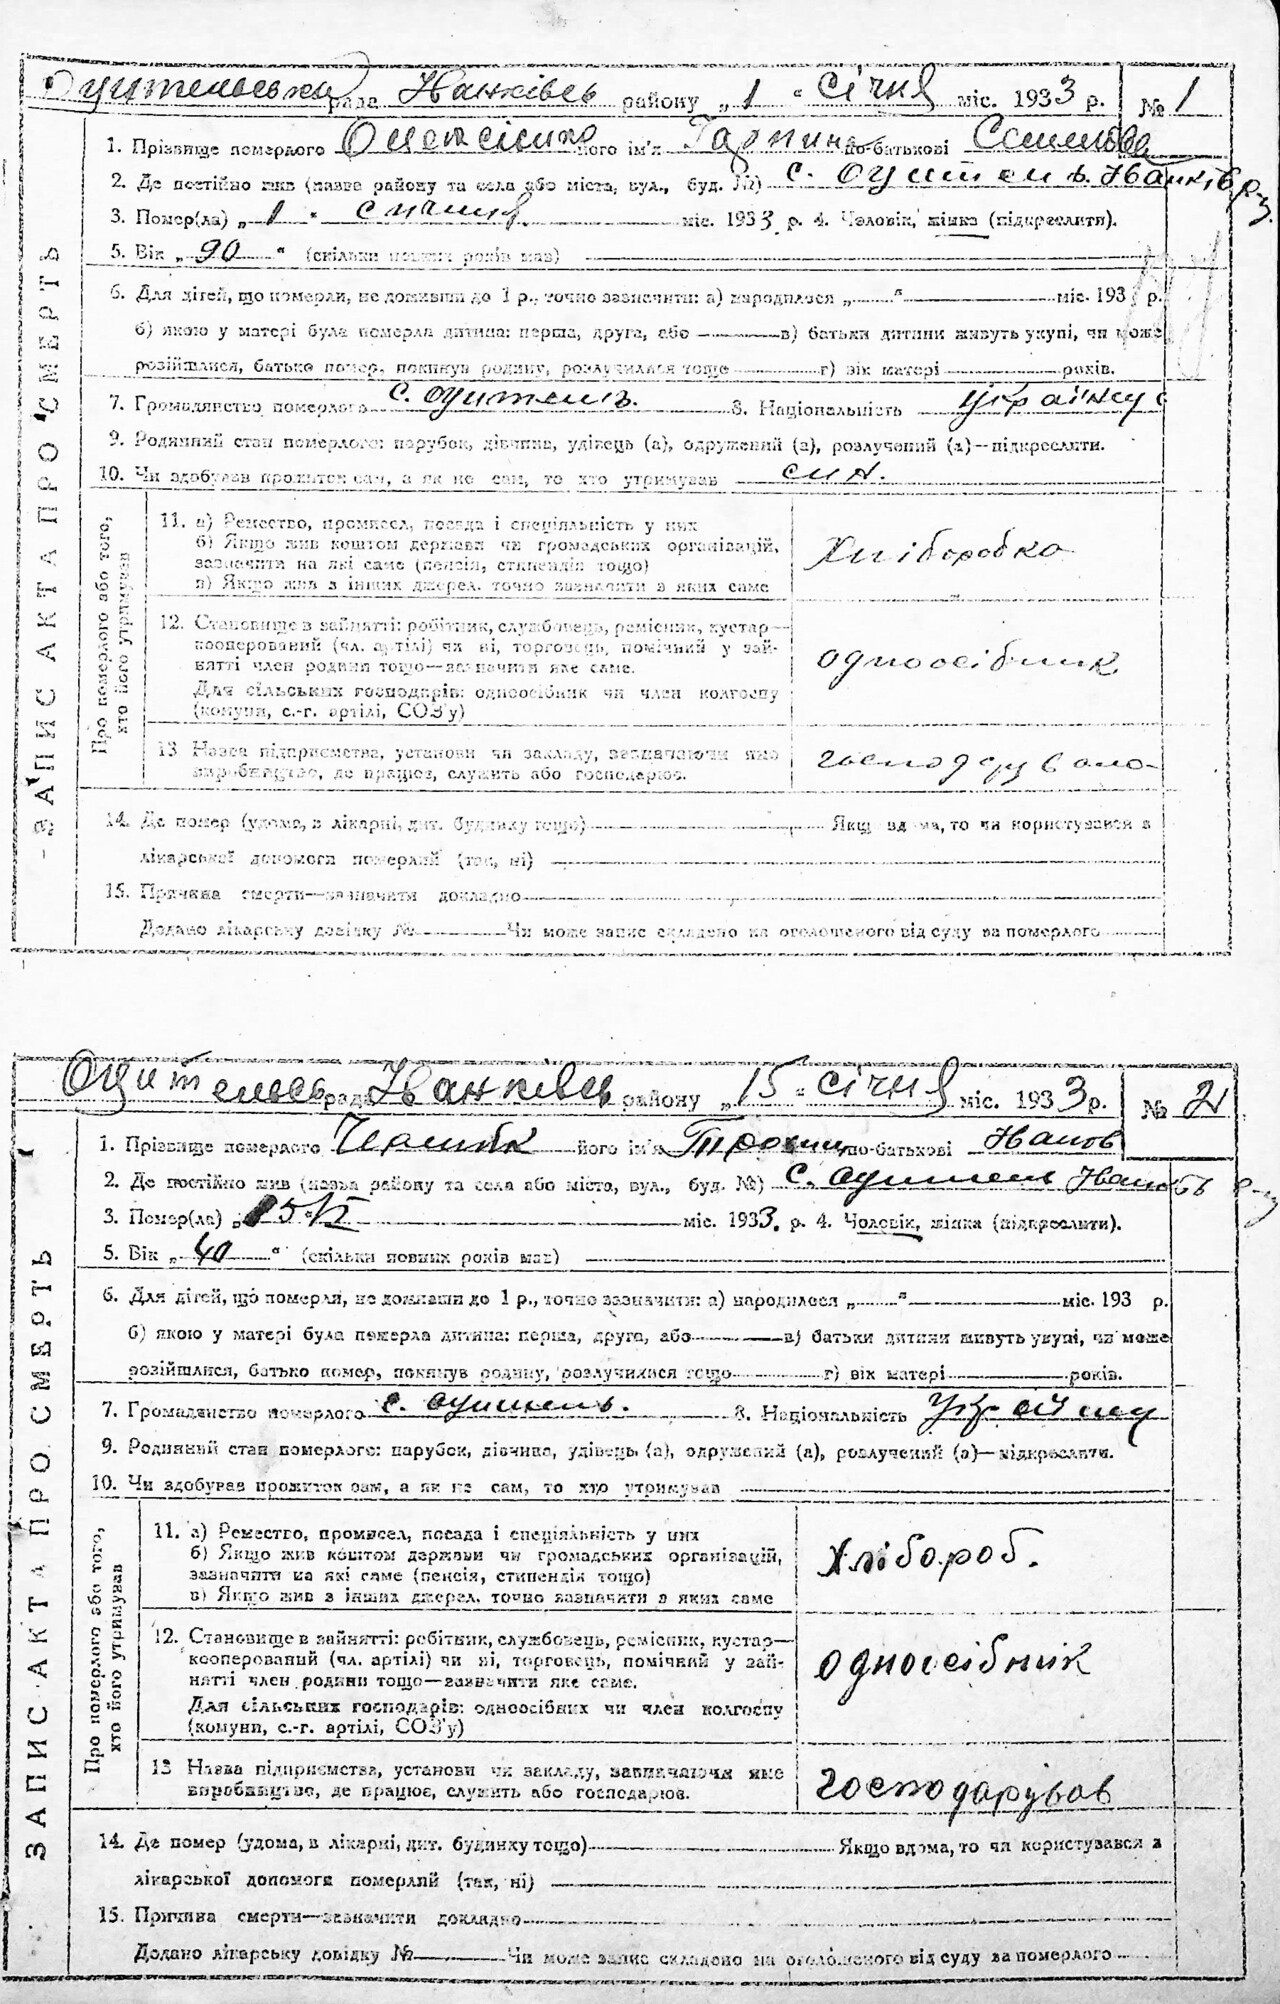 Оцительська рада Іванківсь району „ 1 “ січня міс. 1933 р. № 1
1. Прізвище померлого його ім'я Гарпина по-батькові
2. Де постійно жив (назва району та села або міста, вул., буд. №) с. Оцитель. Іванків р-ну
3. Помер(ла) „ 1 “ січня міс. 1933 р. 4. Чоловік, жінка (підкреслити).
5. Вік „ 90 “ (скільки повних років мав)
6. Для дітей, що померли, не доживши до 1 р., точно зазначити: а) народилося „ “ міс. 193 р.
б) якою у матері була померла дитина: перша, друга, або в) батьки дитини живуть укупі, чи може
розійшлися, батько помер, покинув родину, розлучилися тощо г) вік матері років.
7. Громадянство померлого с. Оцитель. 8. Національність українс
9. Родинний стан померлого: парубок, дівчина, удівець (а), одружений (а), розлучений (а)—підкреслити.
10. Чи здобував прожиток сам, а як не сам, то хто утримував син.
Про померлого або того,
хто його утримував
11. а) Ремество, промисел, посада і спеціяльність у них
б) Якщо жив коштом держави чи громадських організацій,
зазначити на які саме (пенсія, стипендія тощо)
в) Якщо жив з інших джерел, точно зазначити з яких саме
Хліборобка
12. Становище в зайнятті: робітник, службовець, ремісник, кустар—
кооперований (чл. артілі) чи ні, торговець, помічний у зай-
нятті член родини тощо—зазначити яке саме.
Для сільських господарів: одноосібник чи член колгоспу
(комуни, с.-г. артілі, СОЗ'у)
одноосібник
13 Назва підприємства, установи чи закладу, зазначаючи яке
виробництво, де працює, служить або господарює.
господарувала
14. Де помер (удома, в лікарні, дит. будинку тощо) Якщо вдома, то чи користувався з
лікарської допомоги померлий (так, ні)
15. Причина смерти—зазначити докладно
Додано лікарську довідку № Чи може запис складено на оголошеного від суду за померлого
ЗАПИС АКТА ПРО СМЕРТЬ
Оцительсь рада Іванківсь району „ 15 “ січня міс. 1933 р. № 2
1. Прізвище померлого його ім'я Трохим по-батькові Іванов
2. Де постійно жив (назва району та села або міста, вул., буд. №) с. Оцитель Іванківь р-ну
3. Помер(ла) „ 15/I міс. 1933 р. 4. Чоловік, жінка (підкреслити).
5. Вік „ 40 “ (скільки повних років мав)
6. Для дітей, що померли, не доживши до 1 р., точно зазначити: а) народилося „ “ міс. 193 р.
б) якою у матері була померла дитина: перша, друга, або в) батьки дитини живуть укупі, чи може
розійшлися, батько помер, покинув родину, розлучилися тощо г) вік матері років.
7. Громадянство померлого с. Оцитель. 8. Національність
9. Родинний стан померлого: парубок, дівчина, удівець (а), одружений (а), розлучений (а)—підкреслити.
10. Чи здобував прожиток сам, а як не сам, то хто утримував
Про померлого або того,
хто його утримував
11. а) Ремество, промисел, посада і спеціяльність у них
б) Якщо жив коштом держави чи громадських організацій,
зазначити на які саме (пенсія, стипендія тощо)
в) Якщо жив з інших джерел, точно зазначити з яких саме
Хлібороб.
12. Становище в зайнятті: робітник, службовець, ремісник, кустар—
кооперований (чл. артілі) чи ні, торговець, помічний у зай-
нятті член родини тощо—зазначити яке саме.
Для сільських господарів: одноосібник чи член колгоспу
(комуни, с.-г. артілі, СОЗ'у)
одноосібник
13 Назва підприємства, установи чи закладу, зазначаючи яке
виробництво, де працює, служить або господарює.
господарував
14. Де помер (удома, в лікарні, дит. будинку тощо) Якщо вдома, то чи користувався з
лікарської допомоги померлий (так, ні)
15. Причина смерти—зазначити докладно
Додано лікарську довідку № Чи може запис складено на оголошеного від суду за померлого
ЗАПИС АКТА ПРО СМЕРТЬ